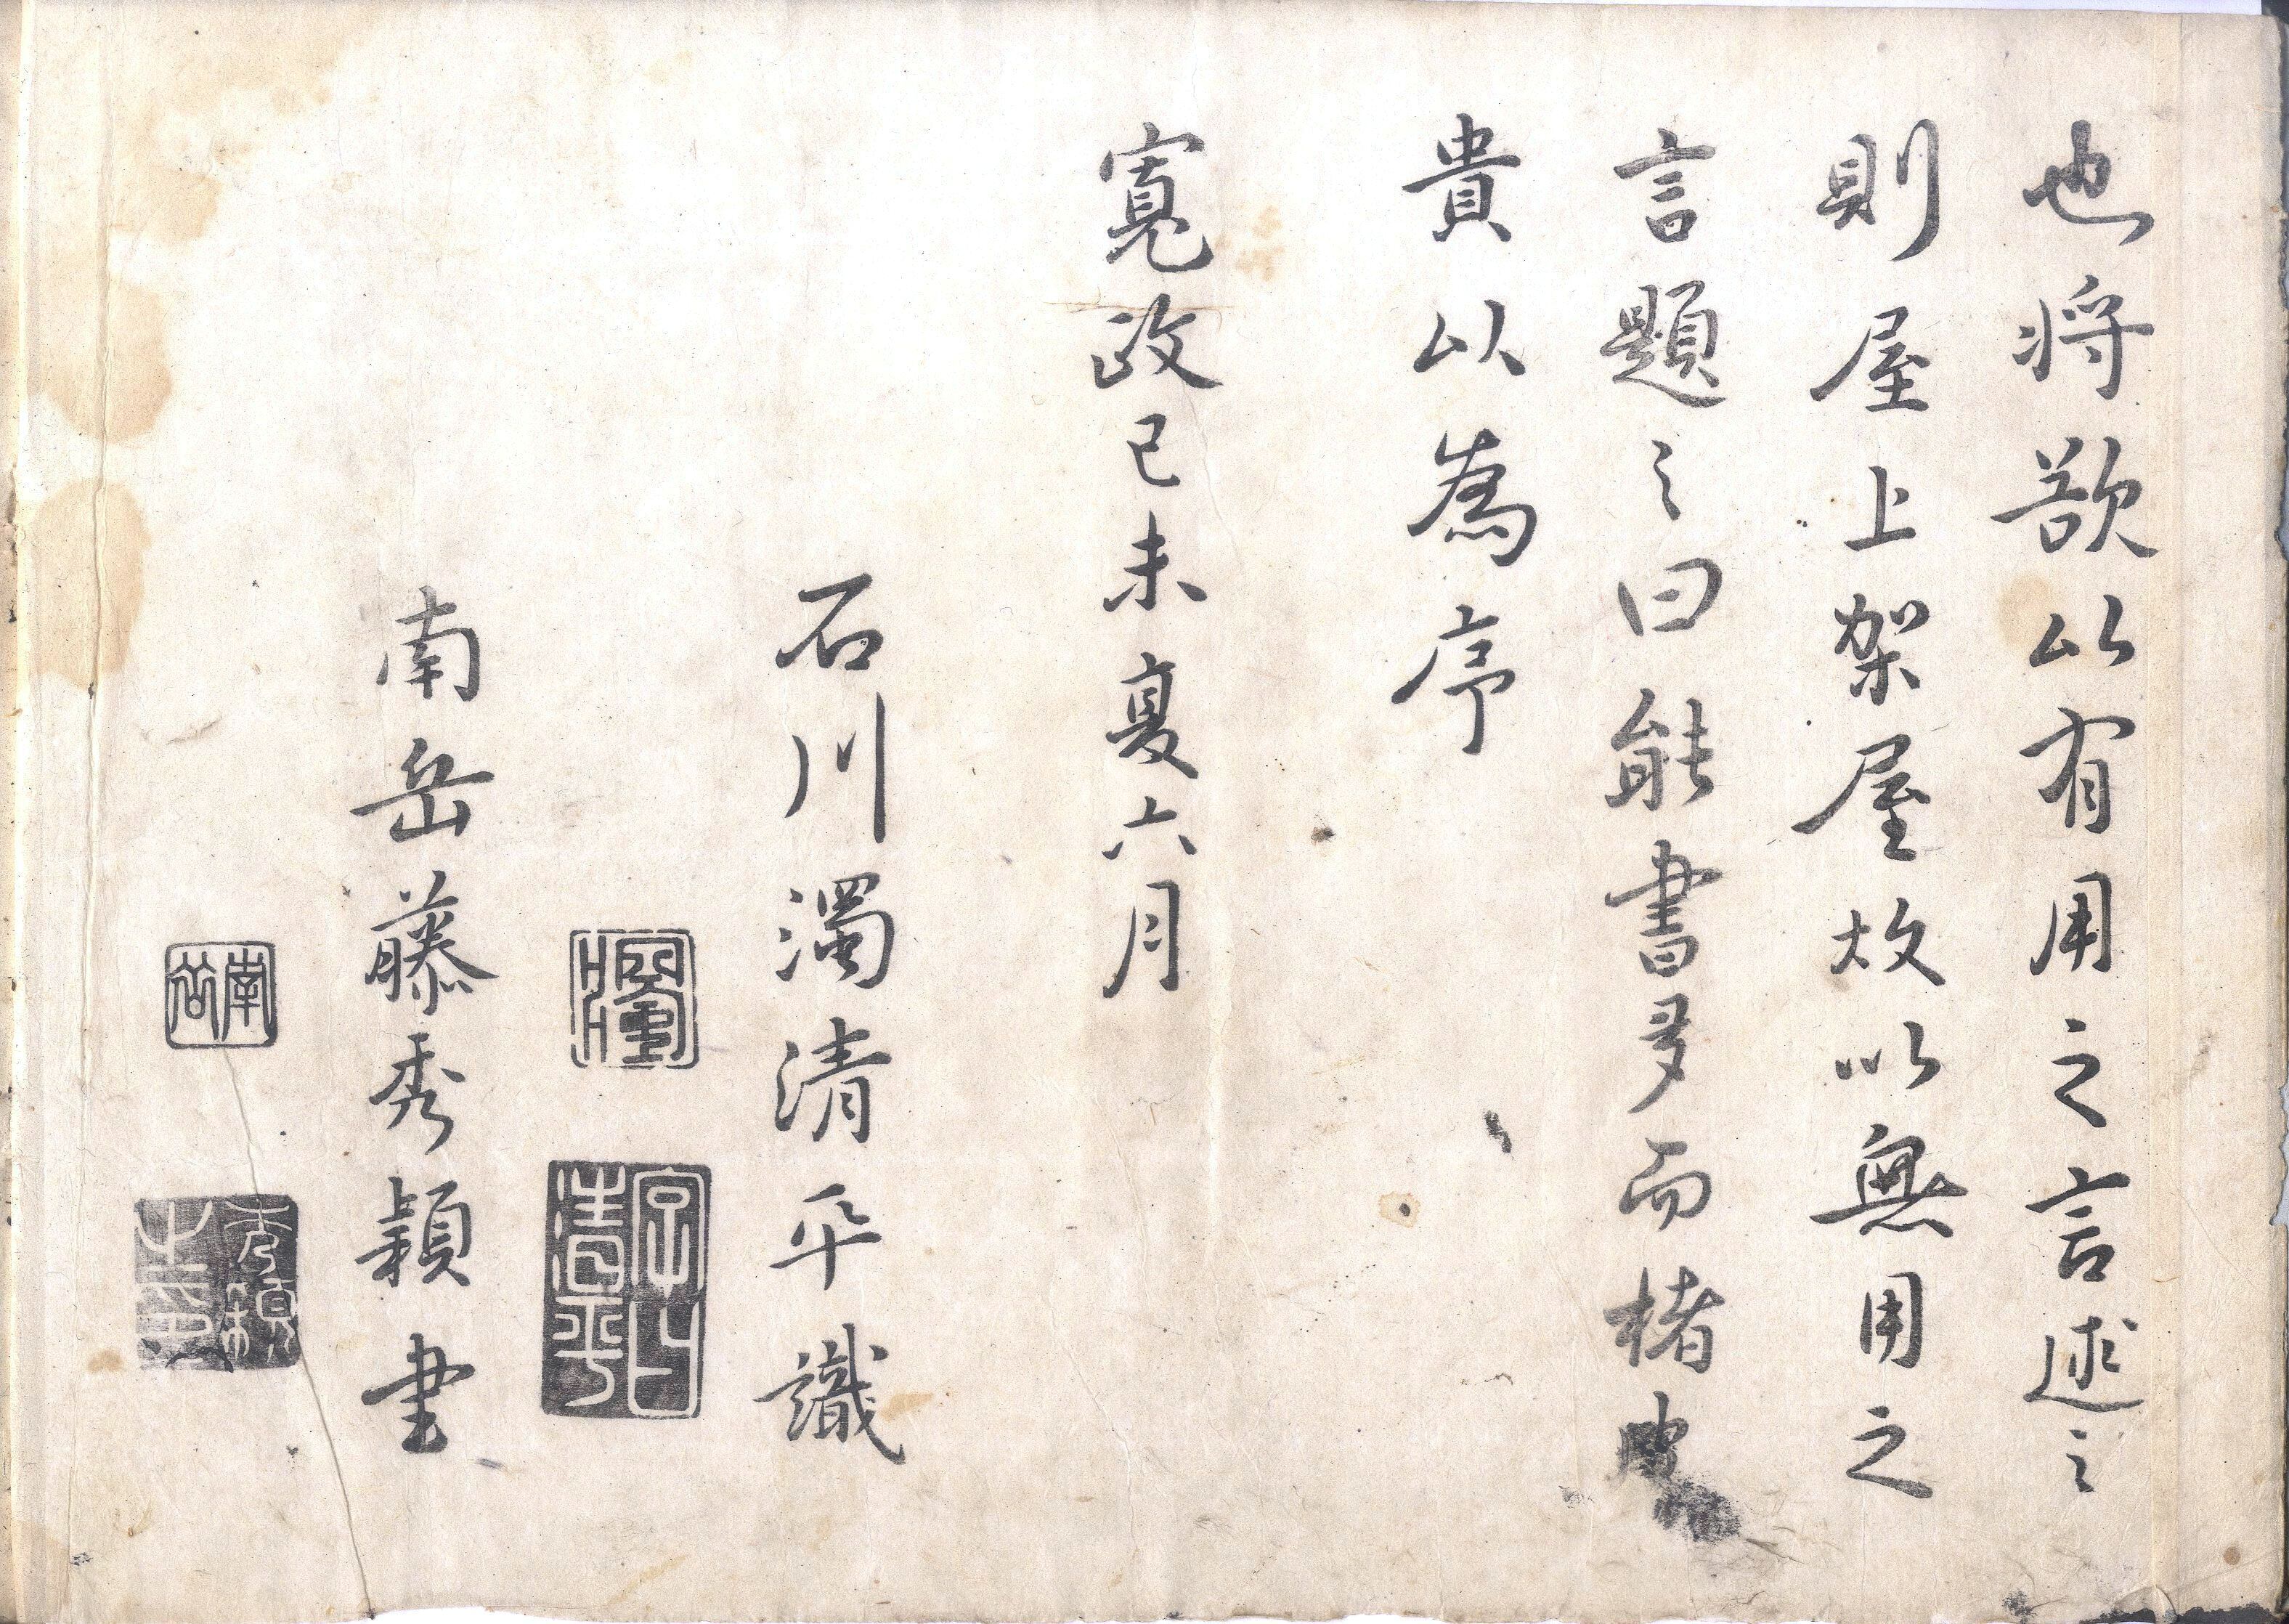 也將欲以有用之言述之
則屋上架屋故以無用之
言題之曰能書多而楮
貴以為序
寬政己未夏六月
石川濁清平識
南岳藤秀穎書
南岳